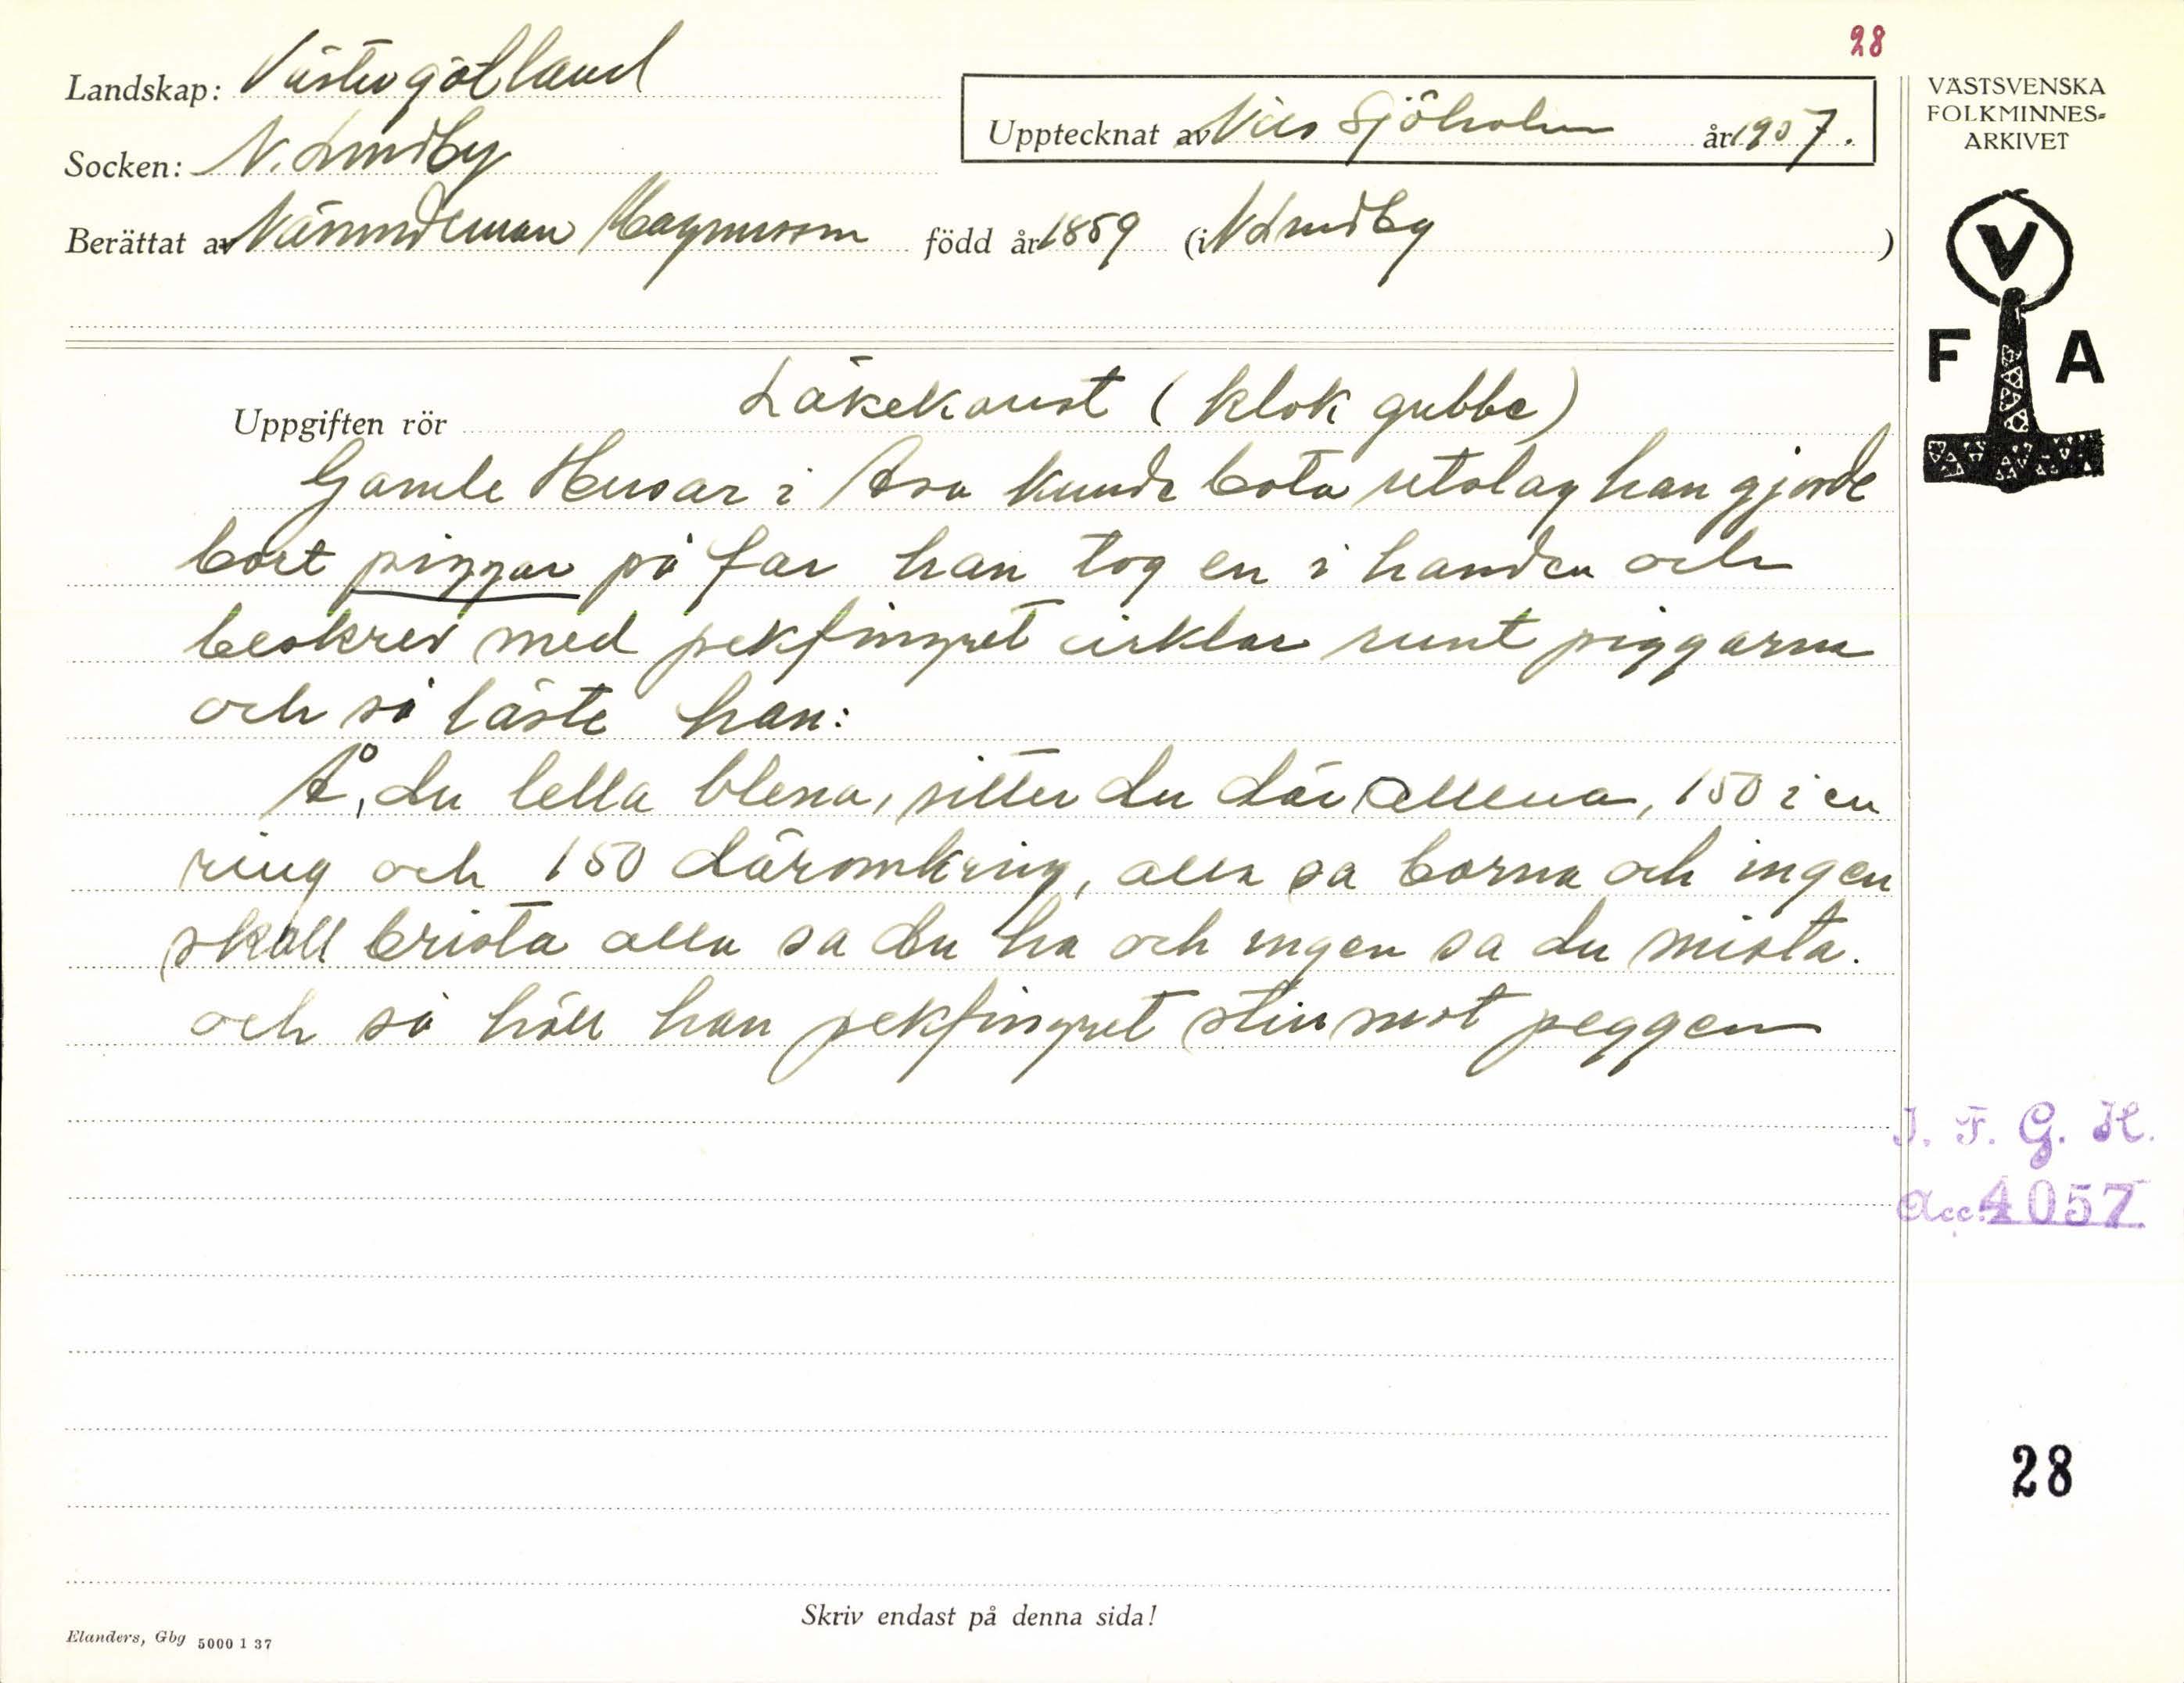 28
Landskap: Västergötland
Socken: N. Lundby
Upptecknat av Nils Sjöholm år 1907.
Berättat av Nämndeman Magnusson född år 1859 (i N Lundby )
VÄSTSVENSKA
FOLKMINNES=
ARKIVET
V
F A
Uppgiften rör Läkekonst (klok gubbe)
Gamle Husar i Asa kunde bota utslag han gjorde
bort piggar på far han tog en i handen och
beskrev med pekfingret cirklar runt piggarna
och så läste han:
Å, du lella blena, sitter du där allena, 150 i en
ring och 150 däromkring, alla sa borna och ingen
skall brista alla sa du ha och ingen sa du mista.
och så höll han pekfingret stint mot peggen
I. F. G. H.
Acc. 4057.
28
Skriv endast på denna sida!
Elanders, Gbg 5000 1 37